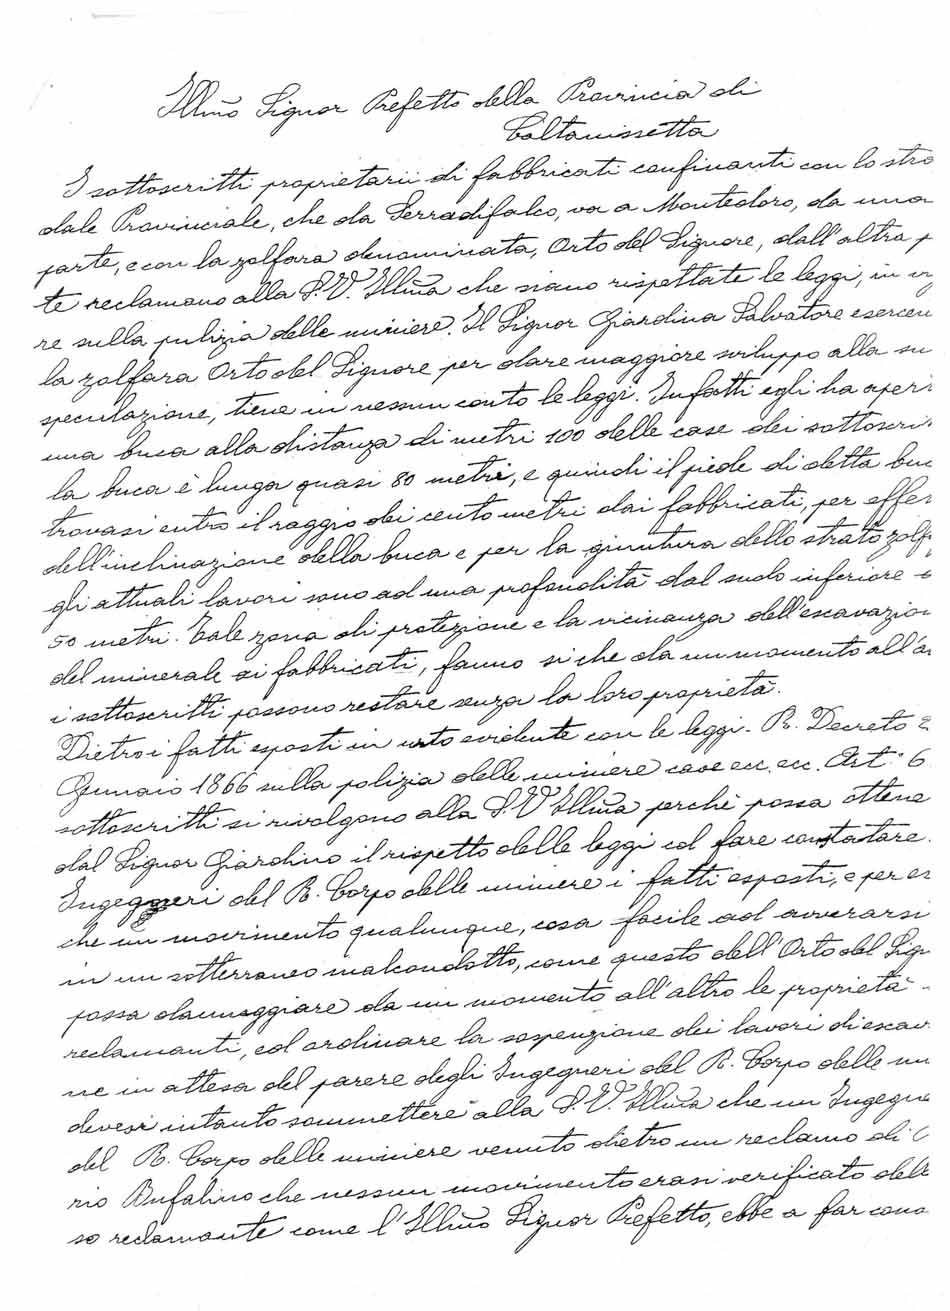 Illmo Signor Prefetto della Provincia di
Caltanissetta
I sottoscritti proprietarii di fabbricati confinanti con lo stra
dale Provinciale, che da Serradifalco, va a Montedoro, da una
parte, e con la zolfara denominata, Orto del Signore, dall'altra p
te reclamano alla S.V. Illma che siano rispettate le leggi, in vig
re sulla pulizia delle miniere. Il Signor Giardina Salvatore esercen
la zolfara Orto del Signore per dare maggiore sviluppo alla su
speculazione, tiene in nessun conto le leggi. Infatti egli ha aper
una buca alla distanza di metri 100 delle case dei sottoscri
la buca è lunga quasi 80 metri, e quindi il piede di detta buc
trovasi entro il raggio dei cento metri dai fabbricati, per effe
dell'inclinazione della buca e per la giuntura dello strato zolf
gli attuali lavori sono ad una profondità dal suolo inferiore
50 metri. Tale zona di protezione e la vicinanza dell'escavazion
del minerale ai fabbricati, fanno si che da un momento all'a
i sottoscritti possono restare senza la loro proprietà.
Dietro i fatti esposti in urto evidente con le leggi. R. Decreto 2
Gennaio 1866 sulla polizia delle miniere cave ecc. ecc. Art. 6
sottoscritti si rivolgono alla S.V Illma perchè possa ottene
dal Signor Giardino il rispetto delle leggi col fare constatare
Ingegneri del R. Corpo delle miniere i fatti esposti, e per es
che un movimento qualunque, cosa facile ad avverarsi
in un sotterraneo malcondotto, come questo dell'Orto del Sig
possa danneggiare da un momento all'altro le proprietà
reclamanti, col ordinare la sospenzione dei lavori di escav
ne in attesa del parere degli Ingegneri del R. Corpo delle mi
devesi intanto sommettere alla S.V. Illma che un Ingegne
del R. Corpo delle miniere venuto dietro un reclamo di C
rio Bufalino che nessun movimento erasi verificato dell
so reclamante come l'Illmo Signor Prefetto, ebbe a far cono